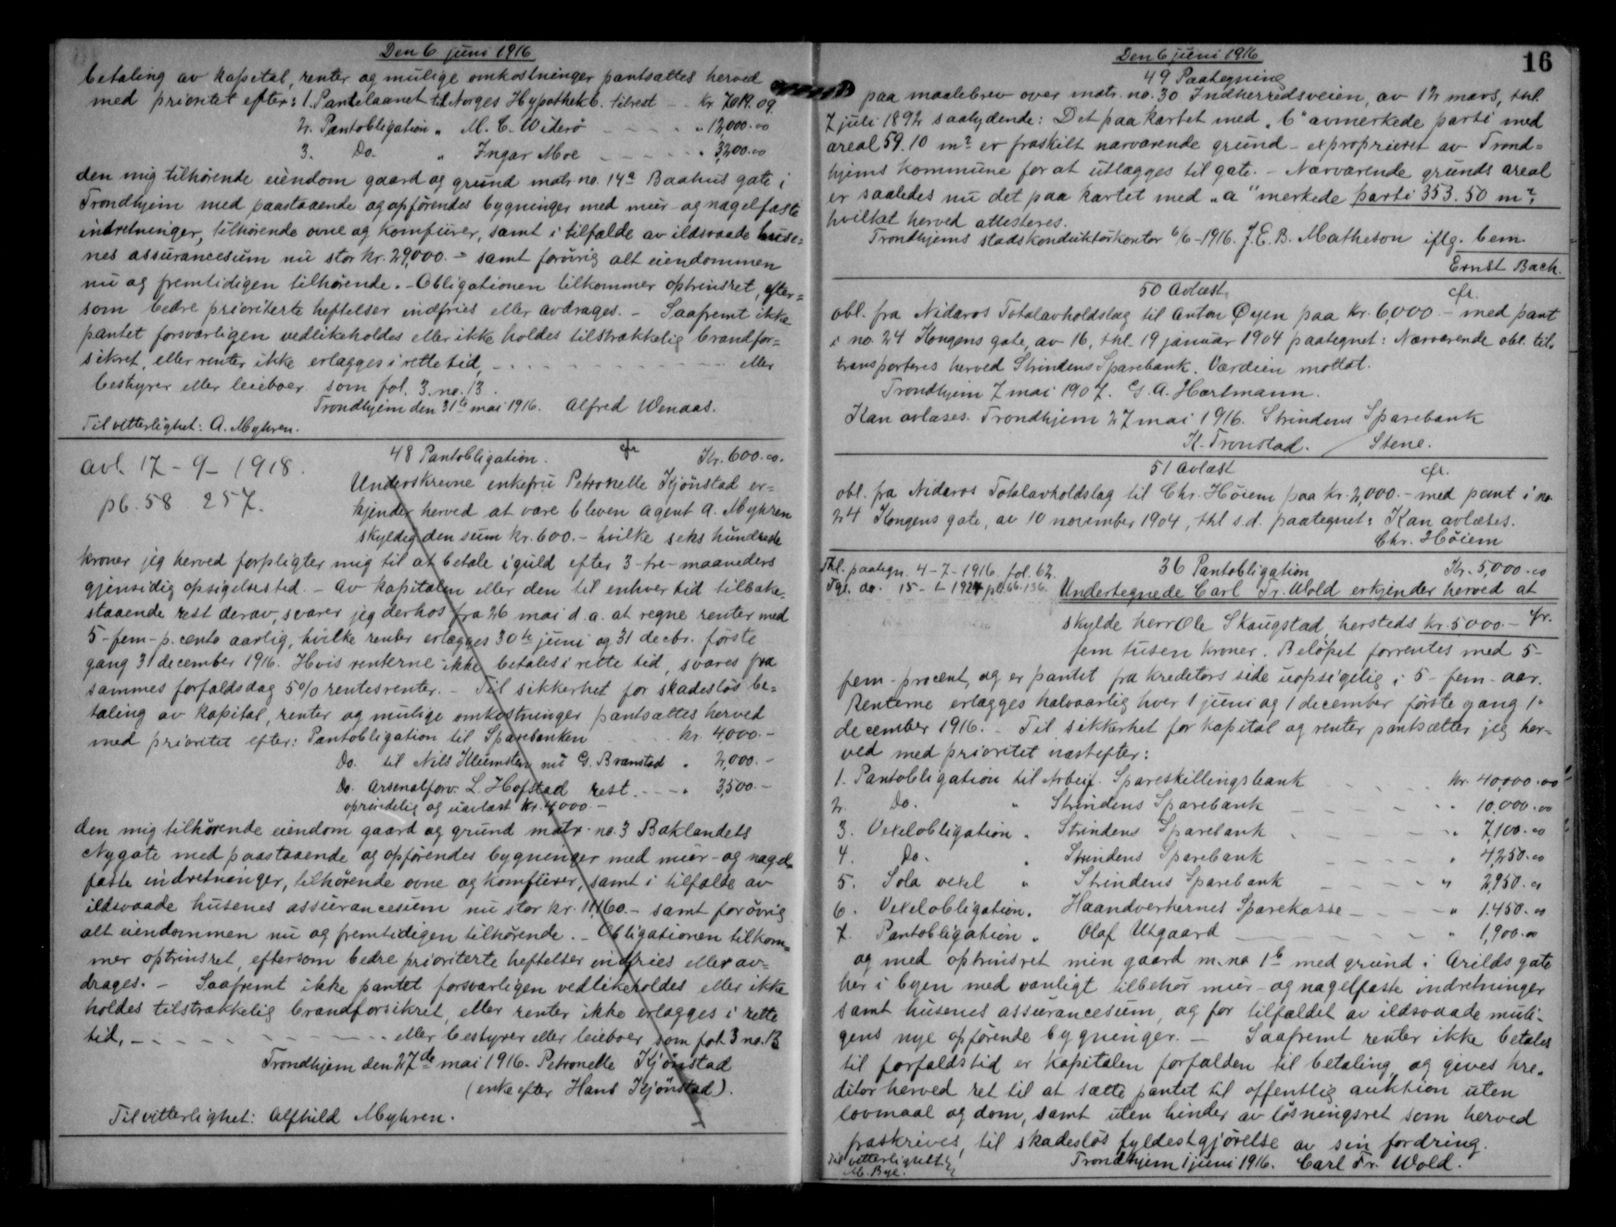 Den 6 juni 1916
betaling av kapital, renter og mulige omkostninger pantsættes herved
med prioritet efter: 1. Pantelaanet til Norges Hypothekb. tilrest - kr. 7019.09
2. Pantobligation " M. C. Widerö - - - - " 12,000.00
3. Do. " Ingar Moe - - - - - " 3,200.00
den mig tilhörende eiendom gaard og grund matr. no. 14a Baahus gate i
Trondhjem med paastaaende og opförendes bygninger med mur- og nagelfaste
indretninger, tilhörende ovne og komfurer, samt i tilfælde av ildsvaade huse-
nes assurancesum nu stor kr. 29,000.- samt forövrig alt eiendommen
nu og fremtidigen tilhörende. - Obligationen tilkommer optrinsret, efter-
som bedre prioriterte heftelser indfries eller avdrages. - Saafremt ikke
pantet forsvarligen vedlikeholdes eller ikke holdes tilstrækkelig brandfor-
sikret, eller renter ikke erlægges i rette tid, - - - - - - - - eller
bestyrer eller leieboer som fol. 3. no. 13.
Trondhjem den 31te mai 1916. Alfred Wenaas.
Til vitterlighet: A. Myhren.
48 Pantobligation. cfr. Kr. 600.00.
avl. 17-9-1918.
pb. 58 257.
Underskrevne enkefru Petronelle Kjönstad er-
kjender herved at være bleven agent A. Myhren
skyldig den sum kr. 600.- hvilke seks hundrede
kroner jeg herved forpligter mig til at betale i guld efter 3-tre-maaneders
gjensidig opsigelsestid. - Av kapitalen eller den til enhver tid tilbake-
staaende rest derav, svarer jeg derhos fra 26 mai d.a. at regne renter med
5-fem-p.cento aarlig, hvilke renter erlægges 30te juni og 31 decbr. første
gang 31 december 1916. Hvis renterne ikke betales i rette tid, svares fra
sammes forfaldsdag 5% rentesrenter. - Til sikkerhet for skadeslös be-
taling av kapital, renter og mulige omkostninger pantsættes herved
med prioritet efter: Pantobligation til Sparebanken kr. 4,000.-
Do. til Nils Kleimsten nu G. Bramstad " 2,000.-
Do. Arsenalforv. L. Hofstad rest. - - - " 3,500.-
oprindelig og uavlæst kr. 4,000.-
den mig tilhörende eiendom gaard og grund matr. no. 3 Baklandets
Nygate med paastaaende og opförendes bygninger med mur- og nagel-
faste indretninger, tilhörende ovne og komfurer, samt i tilfælde av
ildsvaade husenes assurancesum nu stor kr. 11,160.- samt forövrig
alt eiendommen nu og fremtidigen tilhörende. - Obligationen tilkom-
mer optrinsret, eftersom bedre prioriterte heftelser indfries eller av-
drages. - Saafremt ikke pantet forsvarligen vedlikeholdes eller ikke
holdes tilstrækkelig brandforsikret, eller renter ikke erlægges i rette
tid, - - - - - - - - eller bestyrer eller leieboer som fol. 3 no. 13
Trondhjem den 27de mai 1916. Petronelle Kjönstad
(enke efter Hans Kjönstad).
Til vitterlighet: Alfhild Myhren.
Den 6 juni 1916
16
49 Paategning
paa maalebrev over matr. no. 30 Indherredsveien, av 12 mars, thl.
7 juli 1892 saalydende: Det paa kartet med "b" avmerkede parti med
areal 59.10 m² er fraskilt nærværende grund - exproprieret av Trond-
hjems kommune for at utlægges til gate. - Nærværende grunds areal
er saaledes nu det paa kartet med "a" merkede parti 353.50 m²,
hvilket herved attesteres.
Trondhjems stadskonduktörkontor 6/6-1916. J. E. B. Matheson iflg. bem.
Ernst Bach.
50 Avlæst. cfr.
obl. fra Nidaros Totalavholdslag til Anton Øyen paa kr. 6,000.- med pant
i no. 24 Kongens gate, av 16, thl. 19 januar 1904 paategnet: Nærværende obl. til-
transporteres herved Strindens Sparebank. Værdien mottat.
Trondhjem 7 mai 1907. G. A. Hartmann.
Kan avlæses. Trondhjem 27 mai 1916. Strindens Sparebank
K. Tronstad. / Stene.
51 Avlæst cfr.
obl. fra Nidaros Totalavholdslag til Chr. Höiem paa kr. 2,000.- med pant i no.
24 Kongens gate, av 10 november 1904, thl s.d. paategnet: Kan avlæses.
Chr. Höiem
Thl. paategn. 4-7-1916. fol. 62. 36 Pantobligation Kr. 5,000.00
Tgl. do. 15-1-1924 pb. 66-136. Undertegnede Carl Fr. Wold erkjender herved at
skylde herr Ole Skaugstad, hersteds kr. 5000.- cfr.
fem tusen kroner. Belöpet forrentes med 5-
fem-procent, og er pantet fra kreditors side uopsigelig i 5-fem-aar.
Renterne erlægges halvaarlig hver 1 juni og 1 december første gang 1.
december 1916. - Til sikkerhet for kapital og renter pantsætter jeg her-
ved med prioritet næstefter:
1. Pantobligation til Arbeif. Spareskillingsbank - - - - kr. 40,000.00
2. Do. " Strindens Sparebank - - - - " 10,000.00
3. Vexelobligation " Strindens Sparebank - - - - " 7,100.00
4. Do. " Strindens Sparebank - - - - " 4,250.00
5. Sola vexel " Strindens Sparebank - - - - " 2,950.00
6. Vexelobligation " Haandverkernes Sparekasse - - - - " 1,450.00
7. Pantobligation " Olaf Utgaard - - - - " 1,900.00
og med optrinsret min gaard m. no 1b med grund i Arilds gate
her i byen med vanligt tilbehör mur- og nagelfaste indretninger
samt husenes assurancesum, og for tilfældet av ildsvaade muli-
gens nye opförende bygninger. - Saafremt renter ikke betales
til forfaldstid er kapitalen forfalden til betaling og gives kre-
ditor herved ret til at sætte pantet til offentlig auktion uten
lovmaal og dom, samt uten hinder av lösningsret som herved
fraskrives, til skadeslös fyldestgjörelse av sin fordring.
Til vitterlighet: Trondhjem 1 juni 1916. Carl Fr. Wold.
M. Bye.